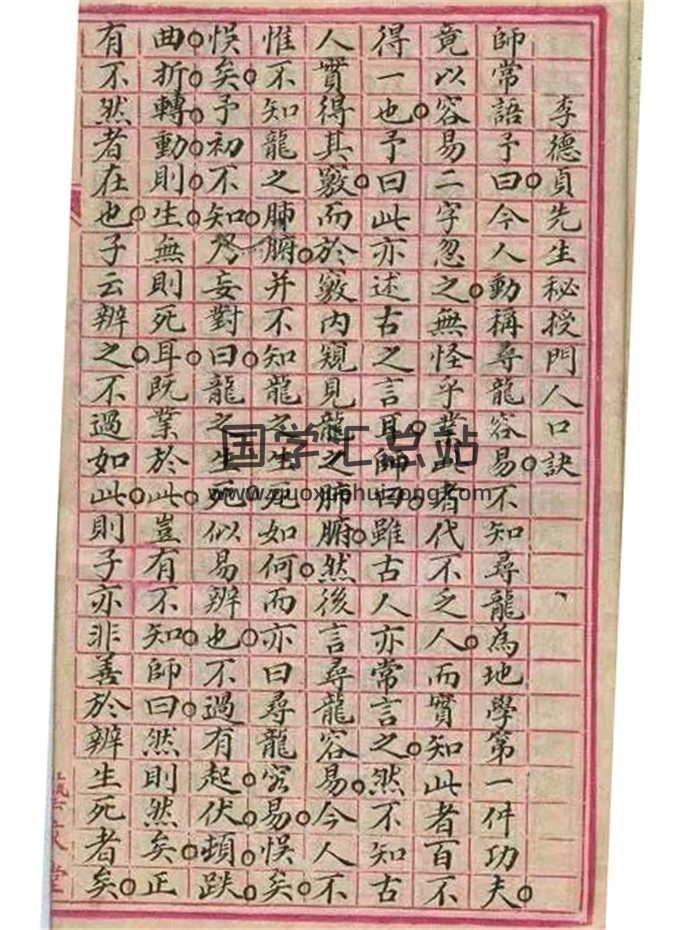 李德貞先生秘授門人口訣
師常語予曰。今人動稱尋龍容易。不知尋龍為地學第一件功夫。
竟以容易二字忽之。無怪乎業此者代不乏人。而實知此者百不
得一也。予曰此亦述古之言耳。師曰。雖古人亦常言之。然不知古
人實得其竅。而於竅內窺見龍之肺腑。然後言尋龍容易。今人不
惟不知龍之肺腑。并不知龍之生死如何。而亦曰尋龍容易。悞矣。
悞矣。予初不知。乃妄對曰。龍之生死似易辨也。不過有起。伏。頓。跌。
曲。折。轉。動。則。生。無則死耳。既業於此。豈有不知。師曰。然則然矣。正
有不然者在也。子云辨之。不過如此。則子亦非善於辨生死者矣。
国学汇总站
www.guoxuehuizong.com